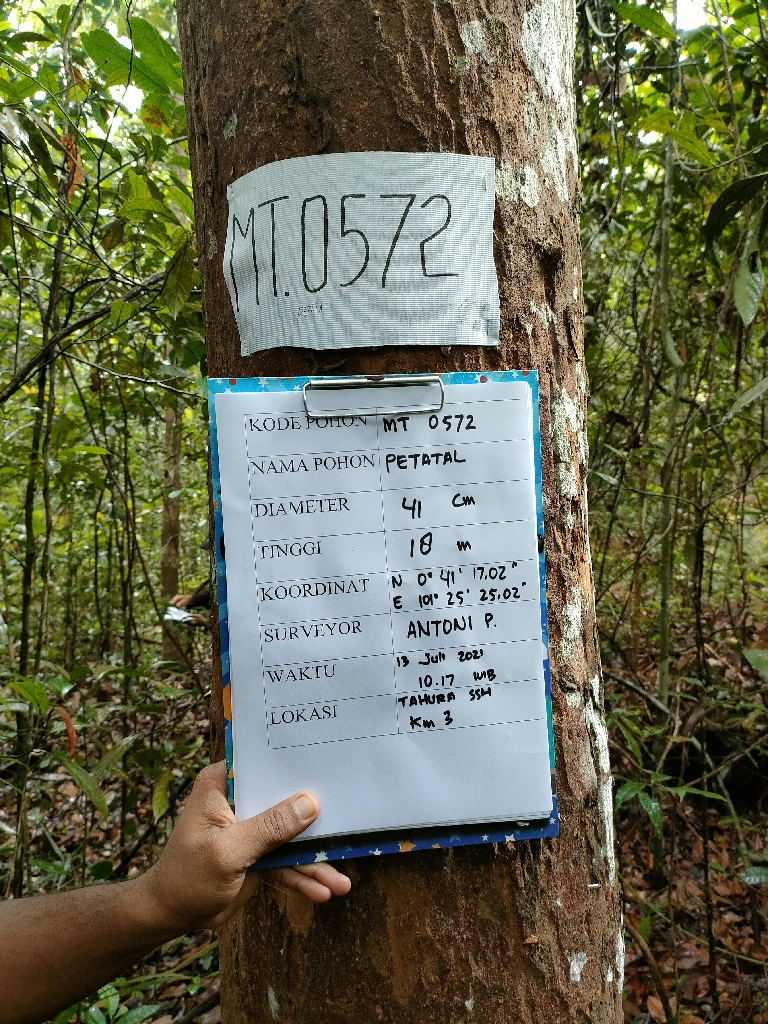 MT.0572
KODE POHON MT 0572
NAMA POHON PETATAL
DIAMETER 41 Cm
TINGGI 18 m
KOORDINAT N 0° 41' 17.02"
E 101° 25' 25.02"
SURVEYOR ANTONI P.
WAKTU 13 Juli 2021
10.17 WIB
LOKASI TAHURA SSH
Km 3